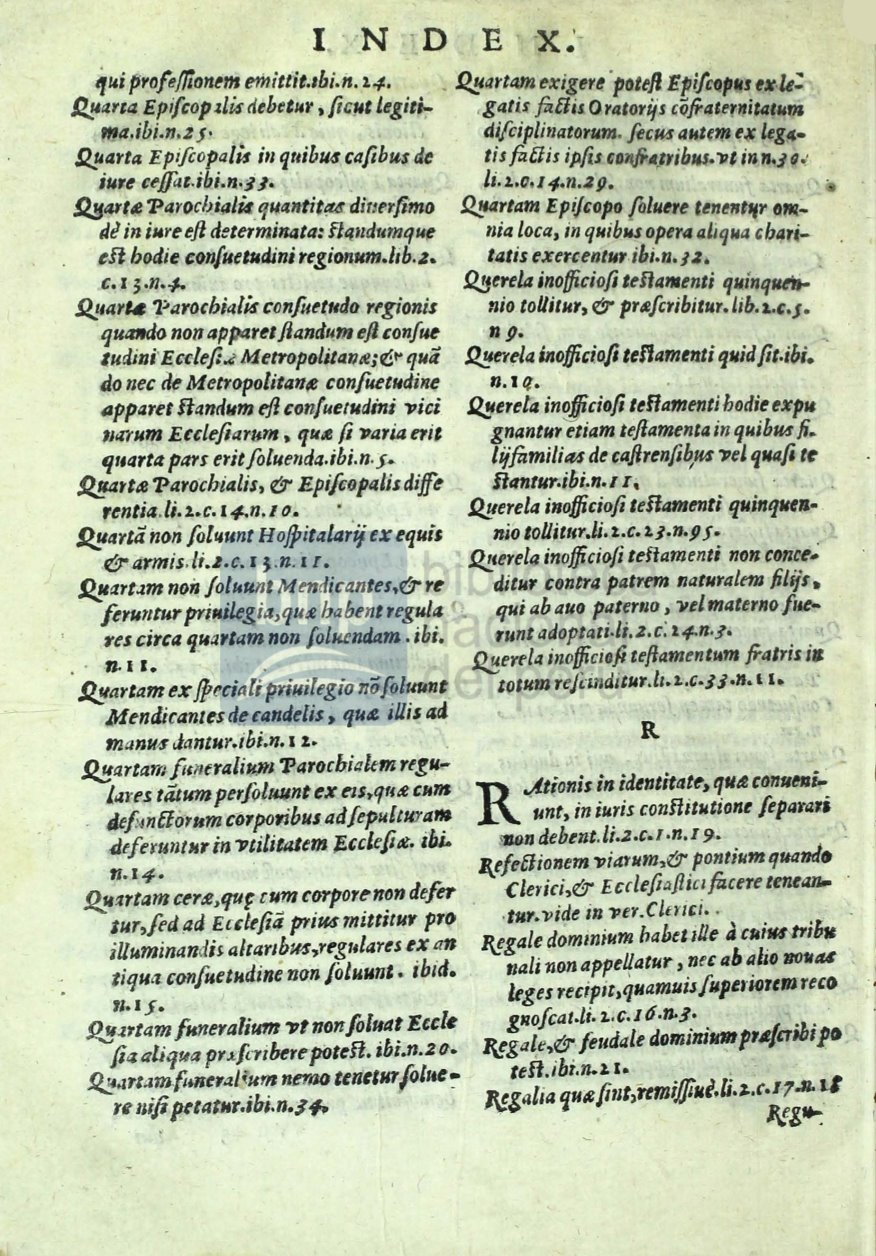 INDEX.
qui professionem emittit.ibi.n.24.
Quarta Episcopalis debetur, sicut legiti-
ma.ibi.n.25.
Quarta Episcopalis in quibus casibus de
iure cessat.ibi.n.33.
Quartæ Parochialis quantitas diuersimo
dè in iure est determinata: standumque
est hodie consuetudini regionum.lib.2.
c.13.n.4.
Quartæ Parochialis consuetudo regionis
quando non apparet standum est consue
tudini Ecclesiæ Metropolitanæ; & quã
do nec de Metropolitanæ consuetudine
apparet standum est consuetudini vici
narum Ecclesiarum, quæ si varia erit
quarta pars erit soluenda.ibi.n.5.
Quartæ Parochialis, & Episcopalis diffe
rentia.li.2.c.14.n.10.
Quartã non soluunt Hospitalarij ex equis
& armis.li.2.c.13.n.11.
Quartam non soluunt Mendicantes,& re
feruntur priuilegia,quæ habent regula
res circa quartam non soluendam . ibi.
n.11.
Quartam ex speciali priuilegio nõ soluunt
Mendicantes de candelis, quæ illis ad
manus dantur.ibi.n.12.
Quartam funeralium Parochialem regu-
lares tãtum persoluunt ex eis,quæ cum
defunctorum corporibus ad sepulturam
deferuntur in vtilitatem Ecclesiæ. ibi.
n.14.
Quartam ceræ,quę cum corpore non defer
tur,sed ad Ecclesiã prius mittitur pro
illuminandis altaribus,regulares ex an
tiqua consuetudine non soluunt. ibid.
n.15.
Quartam funeralium vt non soluat Eccle
sia aliqua præscribere potest. ibi.n.20.
Quartam funeralium nemo tenetur solue-
re nisi petatur.ibi.n.34.
Quartam exigere potest Episcopus ex le-
gatis factis Oratorijs cõfraternitatum
disciplinatorum. secus autem ex lega-
tis factis ipsis confratribus.vt in n.30.
li.2.c.14.n.29.
Quartam Episcopo soluere tenentur om-
nia loca, in quibus opera aliqua chari-
tatis exercentur ibi.n.32.
Querela inofficiosi testamenti quinquen-
nio tollitur, & præscribitur. lib.2.c.5.
n 9.
Querela inofficiosi testamenti quid sit.ibi.
n.10.
Querela inofficiosi testamenti hodie expu
gnantur etiam testamenta in quibus fi-
lijfamilias de castrensibus vel quasi te
stantur.ibi.n.11.
Querela inofficiosi testamenti quinquen-
nio tollitur.li.2.c.23.n.95.
Querela inofficiosi testamenti non conce-
ditur contra patrem naturalem filijs,
qui ab auo paterno, vel materno fue-
runt adoptati.li.2.c.24.n.3.
Querela inofficiosi testamentum fratris in
totum rescinditur.li.2.c.33.n.11.
R
RAtionis in identitate, quæ conueni-
unt, in iuris constitutione separari
non debent.li.2.c.1.n.19.
Refectionem viarum,& pontium quando
Clerici,& Ecclesiastici facere tenean-
tur.vide in ver.Clerici.
Regale dominium habet ille à cuius tribu
nali non appellatur, nec ab alio nouas
leges recipit,quamuis superiorem reco
gnoscat.li.2.c.16.n.3.
Regale,& feudale dominium præscribi po
test.ibi.n.21.
Regalia quæ sint,remissiuè.li.2.c.17.n.18
Regu-